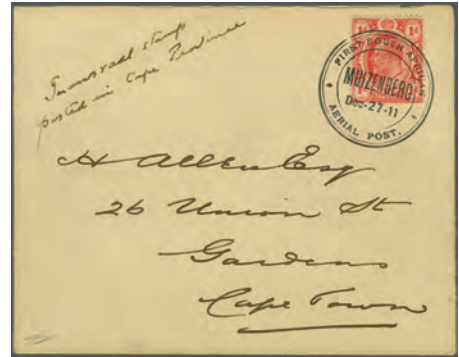 Transvaal stamp
posted in Cape Province
1d 1d
FIRST SOUTH AFRICAN
MUIZENBERG.
Dec-27-11
AERIAL POST.
H Allen Esq
26 Union St
Gardens
Cape Town